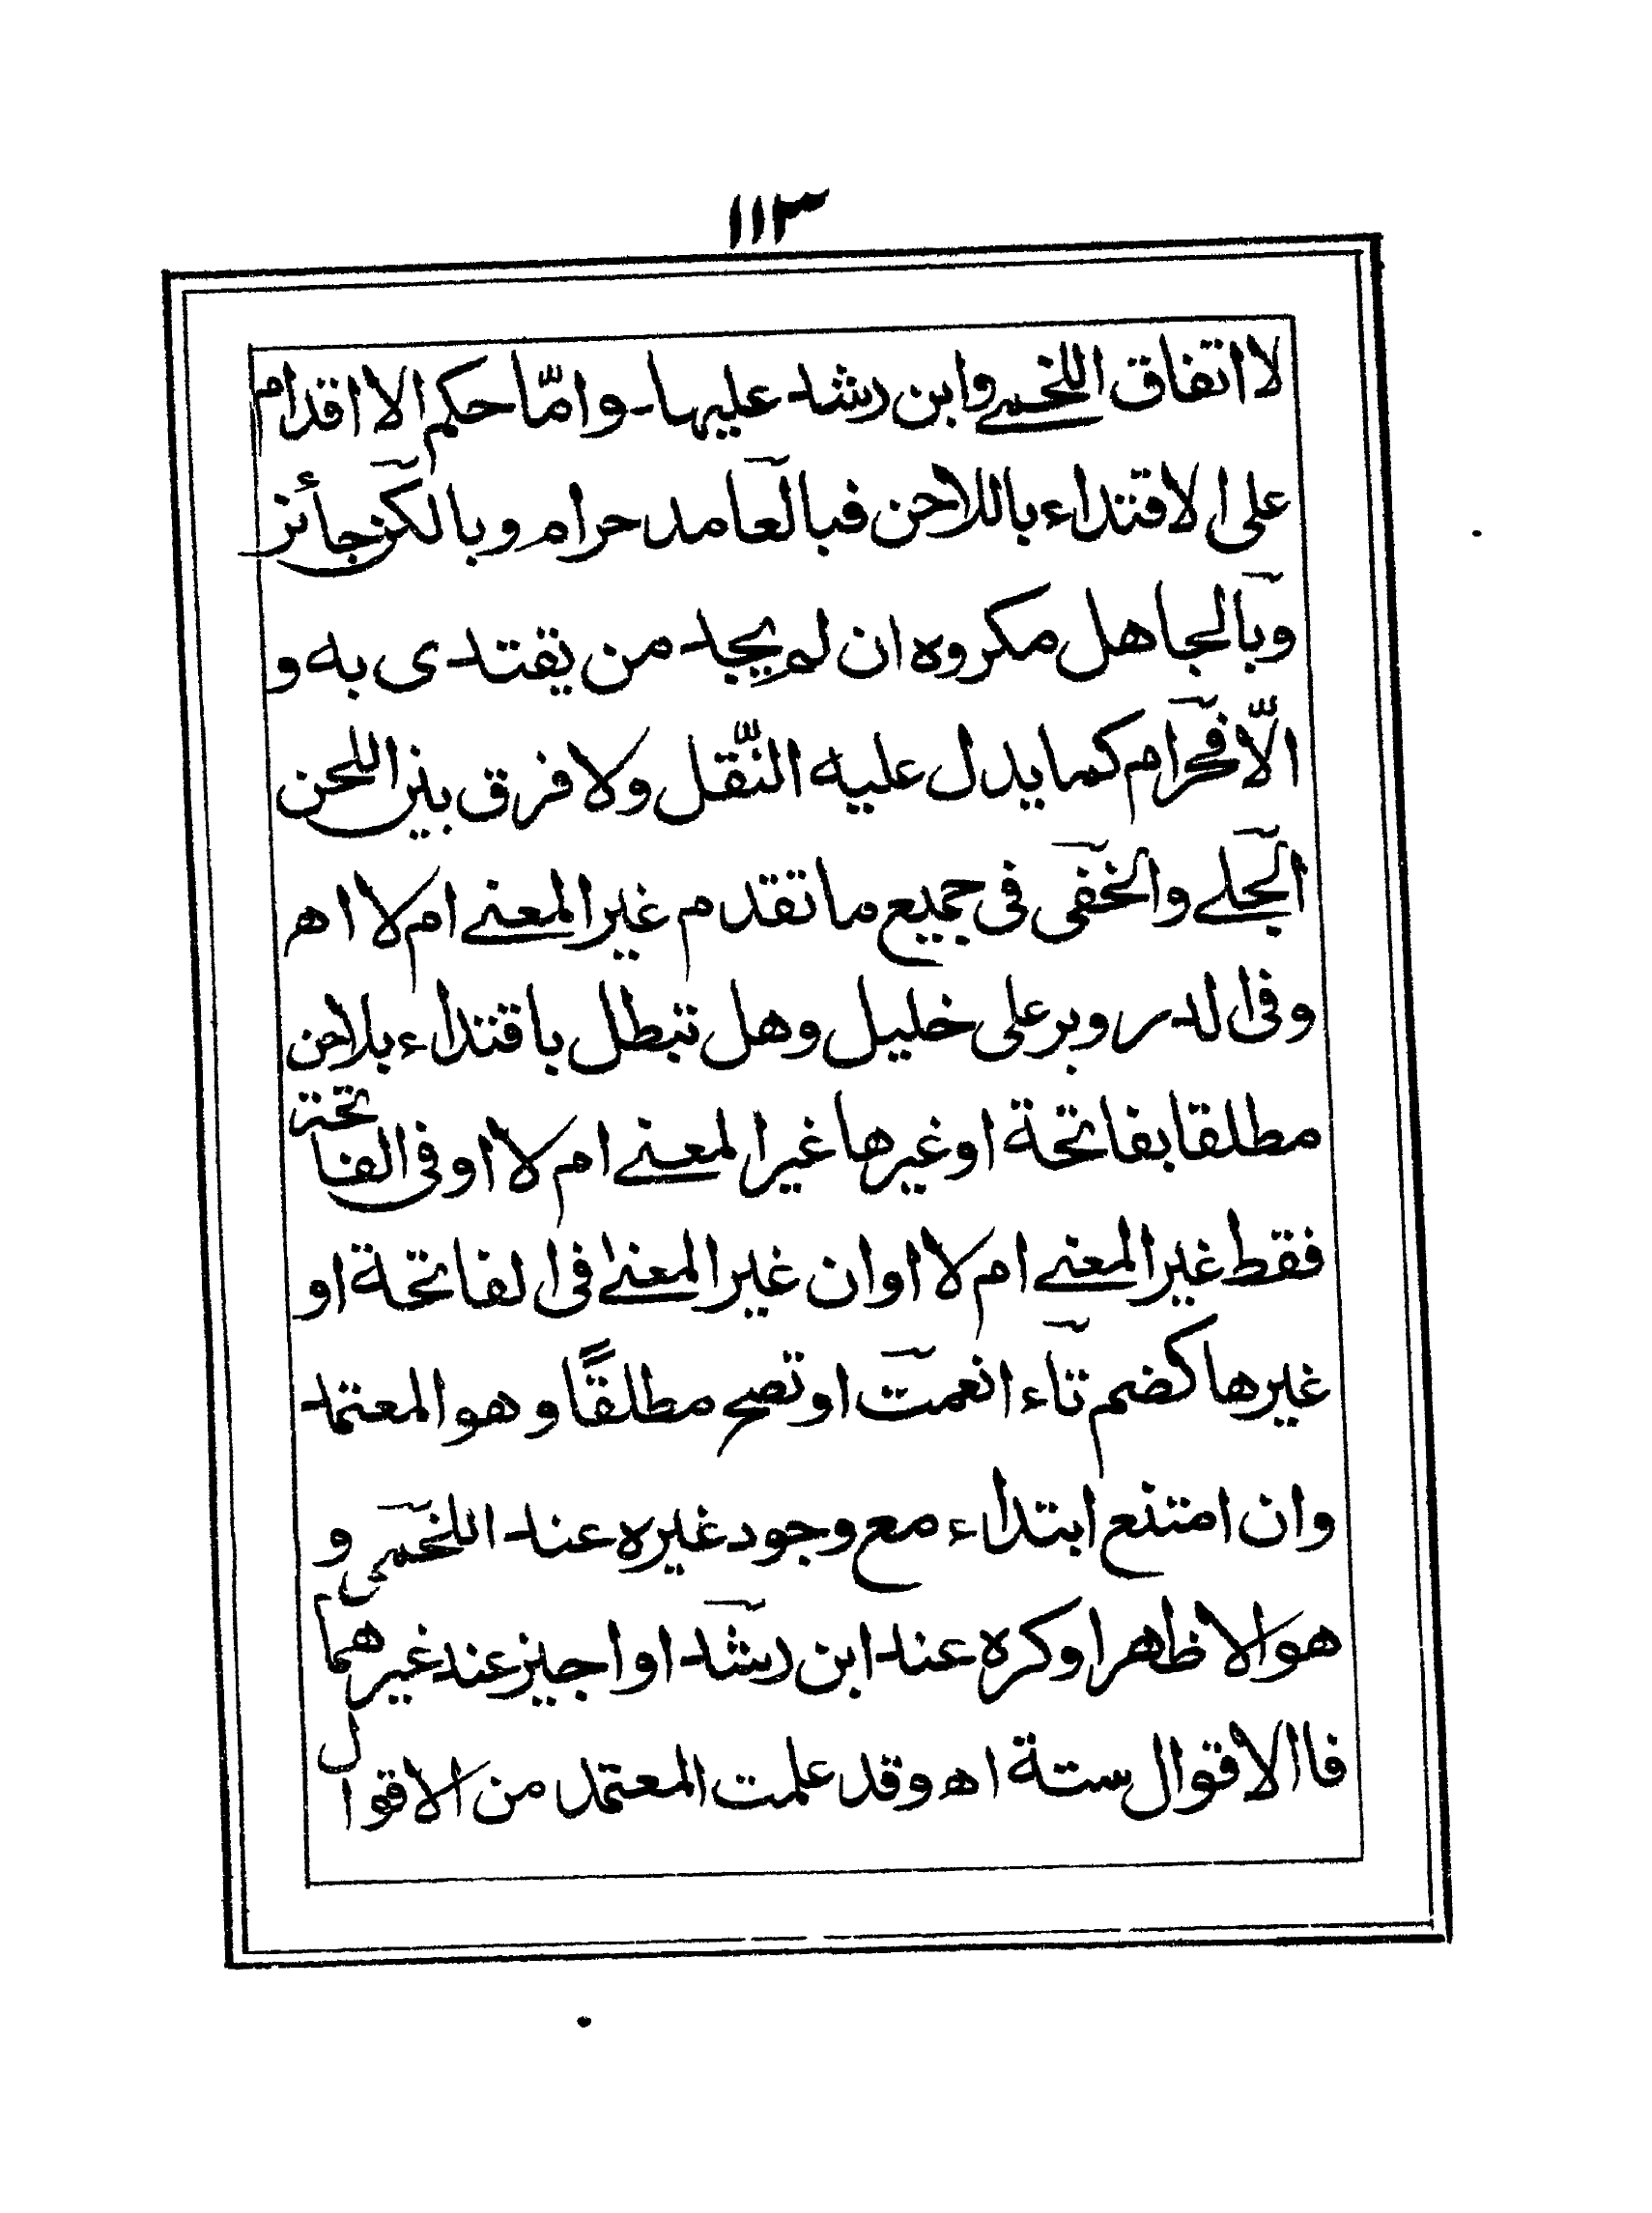 ١١٣
لا اتفاق اللخمي وابن رشد عليها وامّا حكم الا اقدام
على الاقتداء باللاحن فبالعامد حرام وبالكن جائز
وبالجاهل مكروه ان لم يجد من يقتدى به و
الّا فحرام كما يدل عليه النّقل ولا فرق بين اللحن
الجلي والخفي في جميع ما تقدم غير المعنى ام لا اه
وفي الدر وبر على خليل وهل تبطل باقتداء بلاحن
مطلقا بفاتحة او غيرها غير المعنى ام لا او في الفاتحة
فقط غير المعنى ام لا او ان غير المعنى في الفاتحة او
غيرها كضم تاء انعمت او تصح مطلقًا وهو المعتمد
وان امتنع ابتداء مع وجود غيره عند اللخمي و
هو الاظهر او كره عند ابن رشد او اجيز عند غيرهما
فا الاقوال ستة اه وقد علمت المعتمد من الاقوال